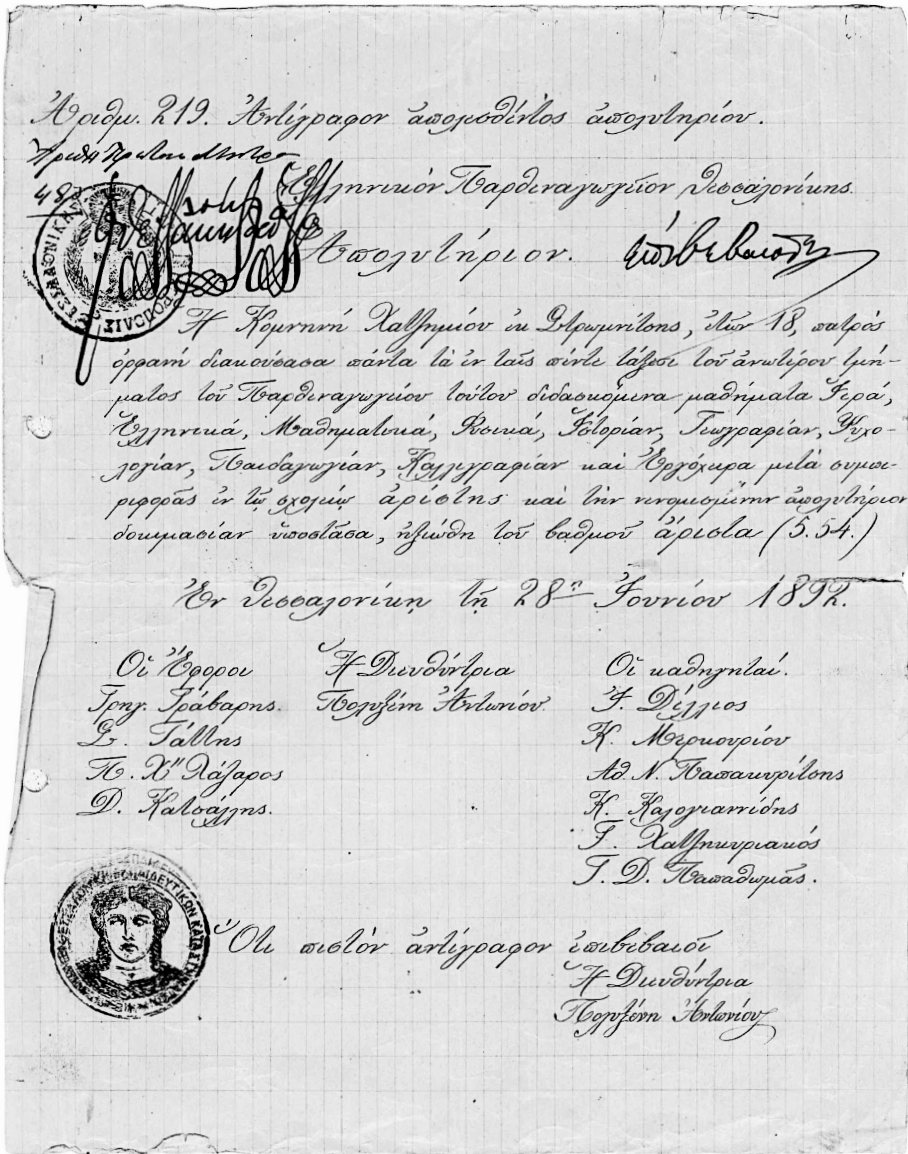 Ἀριθμ. 219. Ἀντίγραφον ἀπολεσθέντος ἀπολυτηρίου.
48
Ἑλληνικόν Παρθεναγωγεῖον Θεσσαλονίκης.
Ἀπολυτήριον.
Ἡ Κομνηνή Χατζημίσου ἐκ Στρωμνίτσης, ἐτῶν 18, πατρός
ὀρφανή διακούσασα πάντα τά ἐν ταῖς πέντε τάξεσι τοῦ ἀνωτέρου τμή-
ματος τοῦ Παρθεναγωγείου τούτου διδασκόμενα μαθήματα Ἱερά,
Ἑλληνικά, Μαθηματικά, Φυσικά, Ἱστορίαν, Γεωγραφίαν, Ψυχο-
λογίαν, Παιδαγωγίαν, Καλλιγραφίαν καί Ἐργόχειρα μετά συμπε-
ριφορᾶς ἐν τῷ σχολείῳ ἀρίστης καί τήν νενομισμένην ἀπολυτήριον
δοκιμασίαν ὑποστᾶσα, ἠξιώθη τοῦ βαθμοῦ ἄριστα (5.54.)
Ἐν Θεσσαλονίκῃ τῇ 28ῃ Ἰουνίου 1892.
Οἱ Ἔφοροι Ἡ Διευθύντρια Οἱ καθηγηταί.
Γρηγ. Γράβαρης. Πολυξένη Ἀντωνίου Ἰ. Δέλλιος
Σ. Τάττης Κ. Μερκουρίου
Π. Χ" Λάζαρος Ἀθ. Ν. Παπακυρίτσης
Δ. Κατσάλης. Κ. Καλογιαννίδης
Γ. Χατζηκυριακός
Γ. Δ. Παπαθωμᾶς.
Ὅτι πιστόν ἀντίγραφον ἐπιβεβαιοῖ
Ἡ Διευθύντρια
Πολυξένη Ἀντωνίου